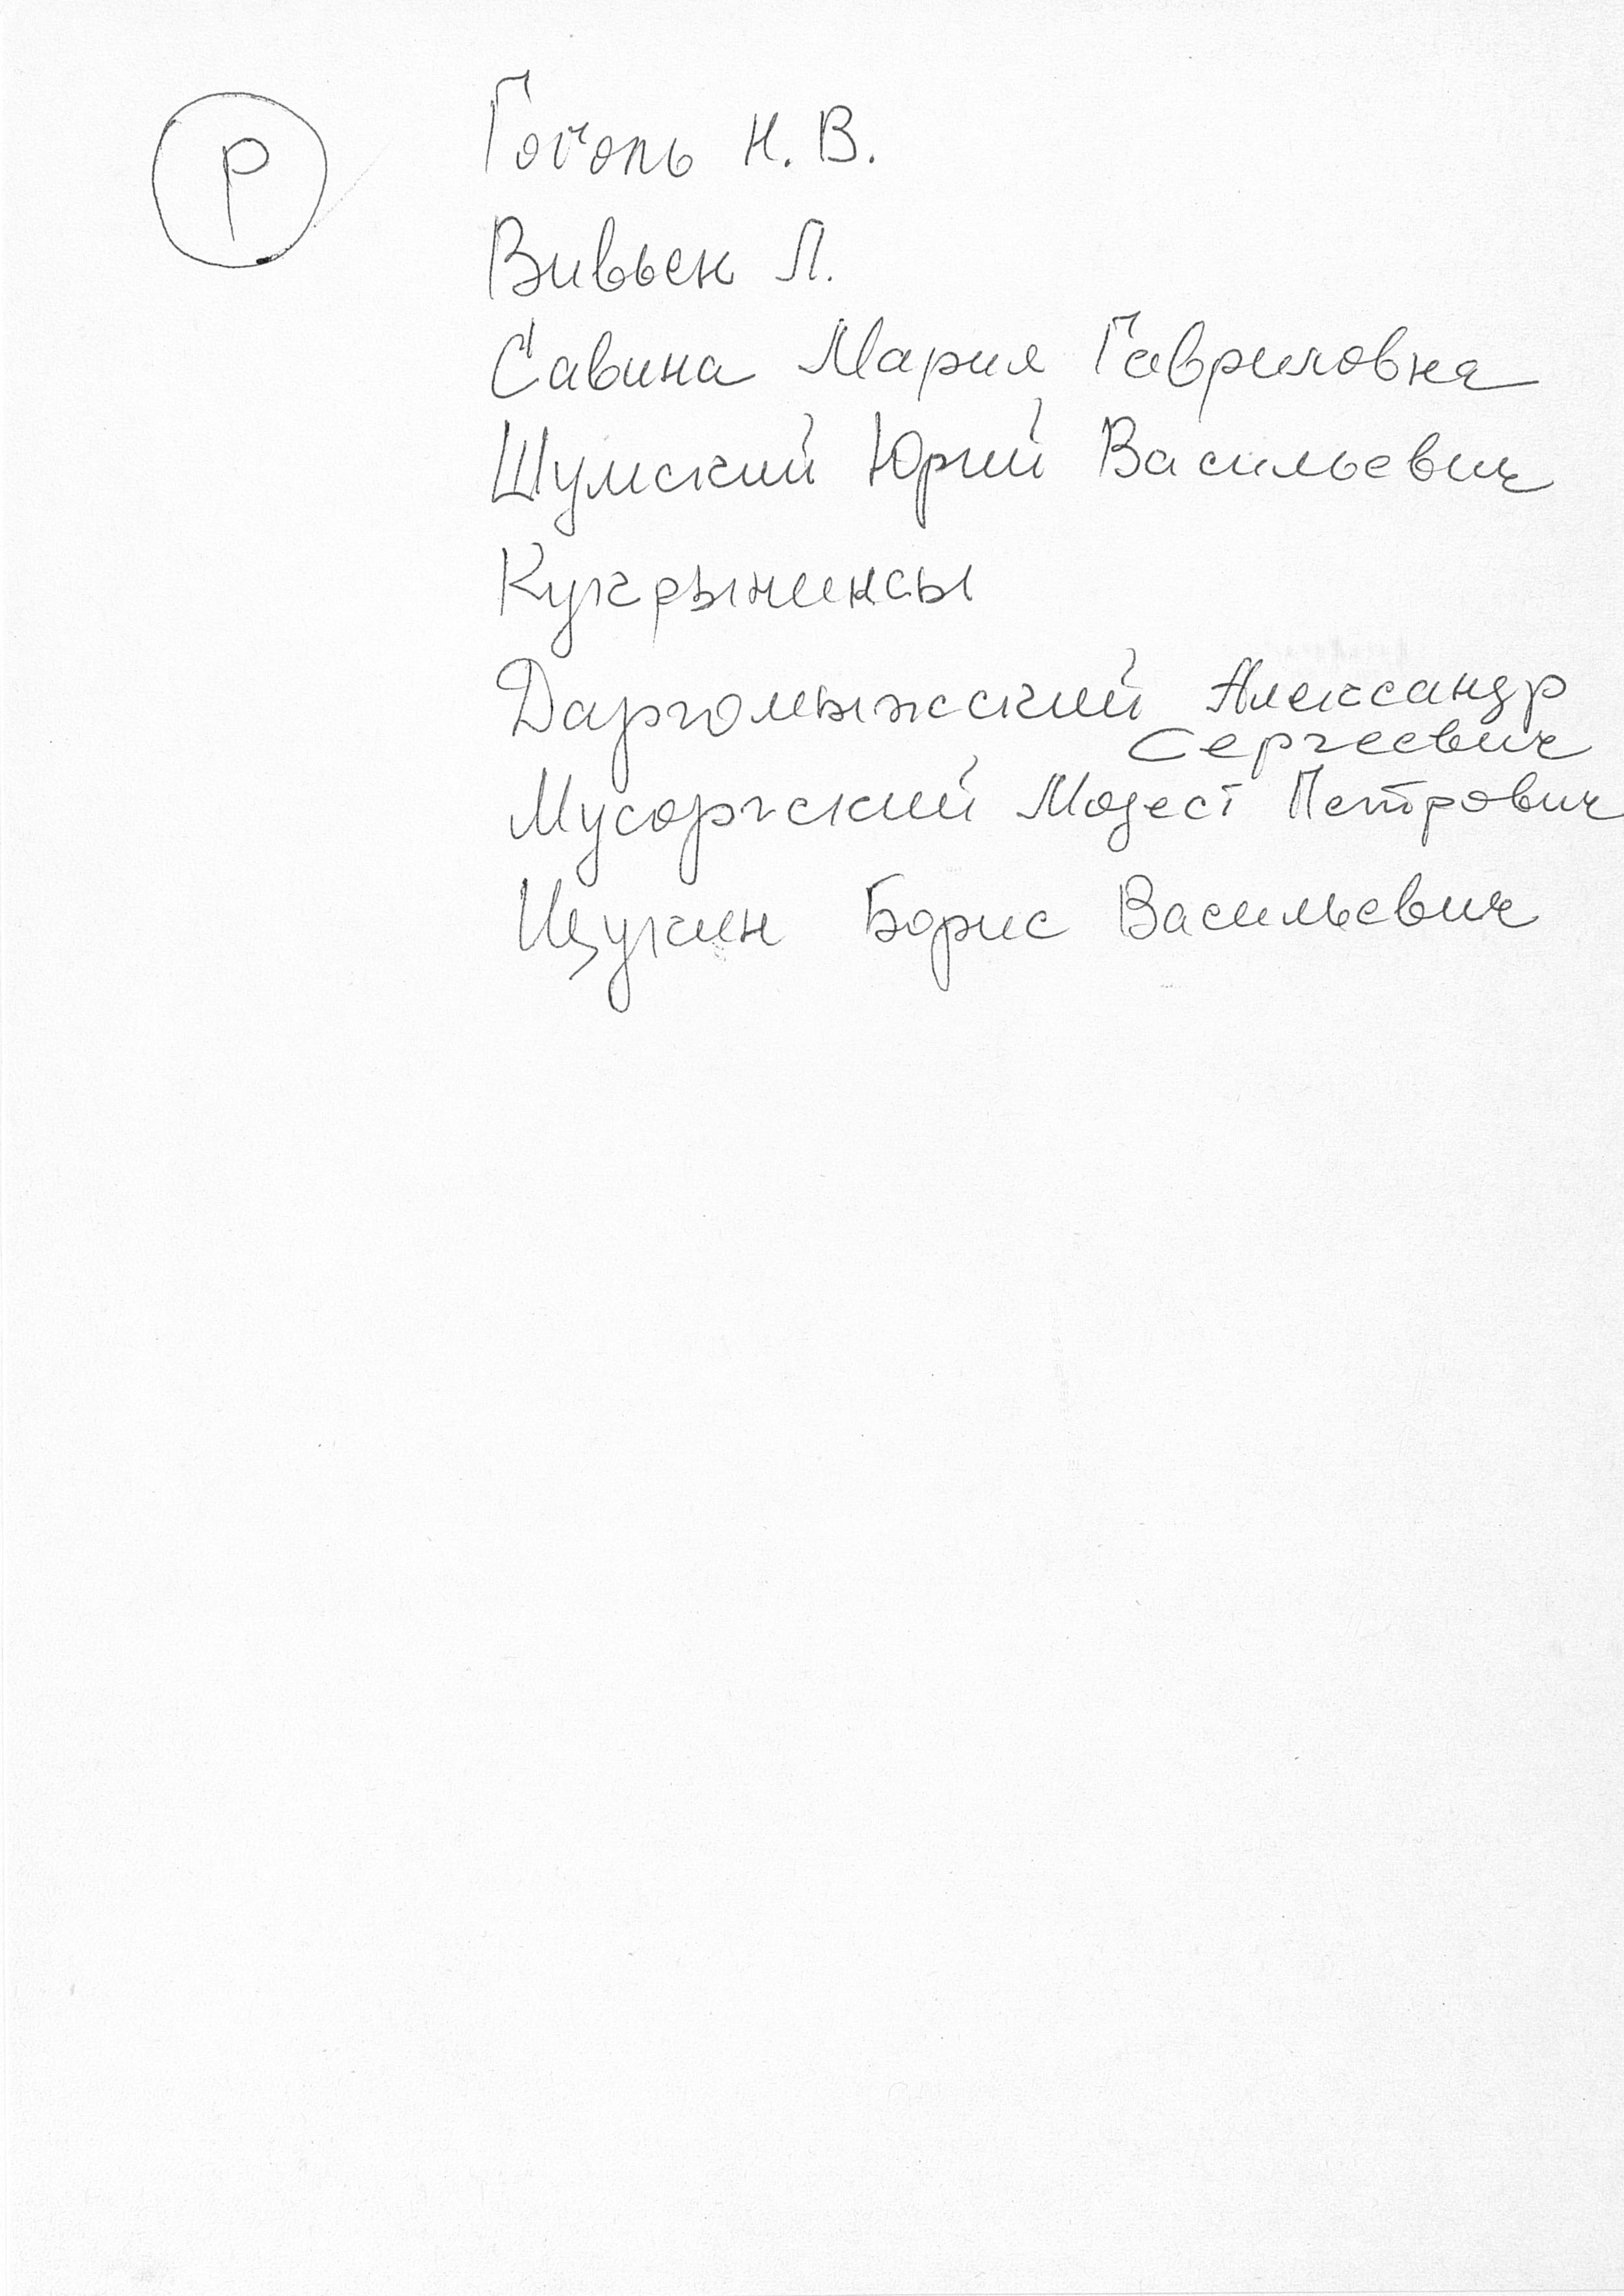 Р
Гоголь Н. В.
Вивьен Л.
Савина Мария Гавриловна
Шумский Юрий Васильевич
Кукрыниксы
Даргомыжский Александр
Сергеевич
Мусоргский Модест Петрович
Щукин Борис Васильевич